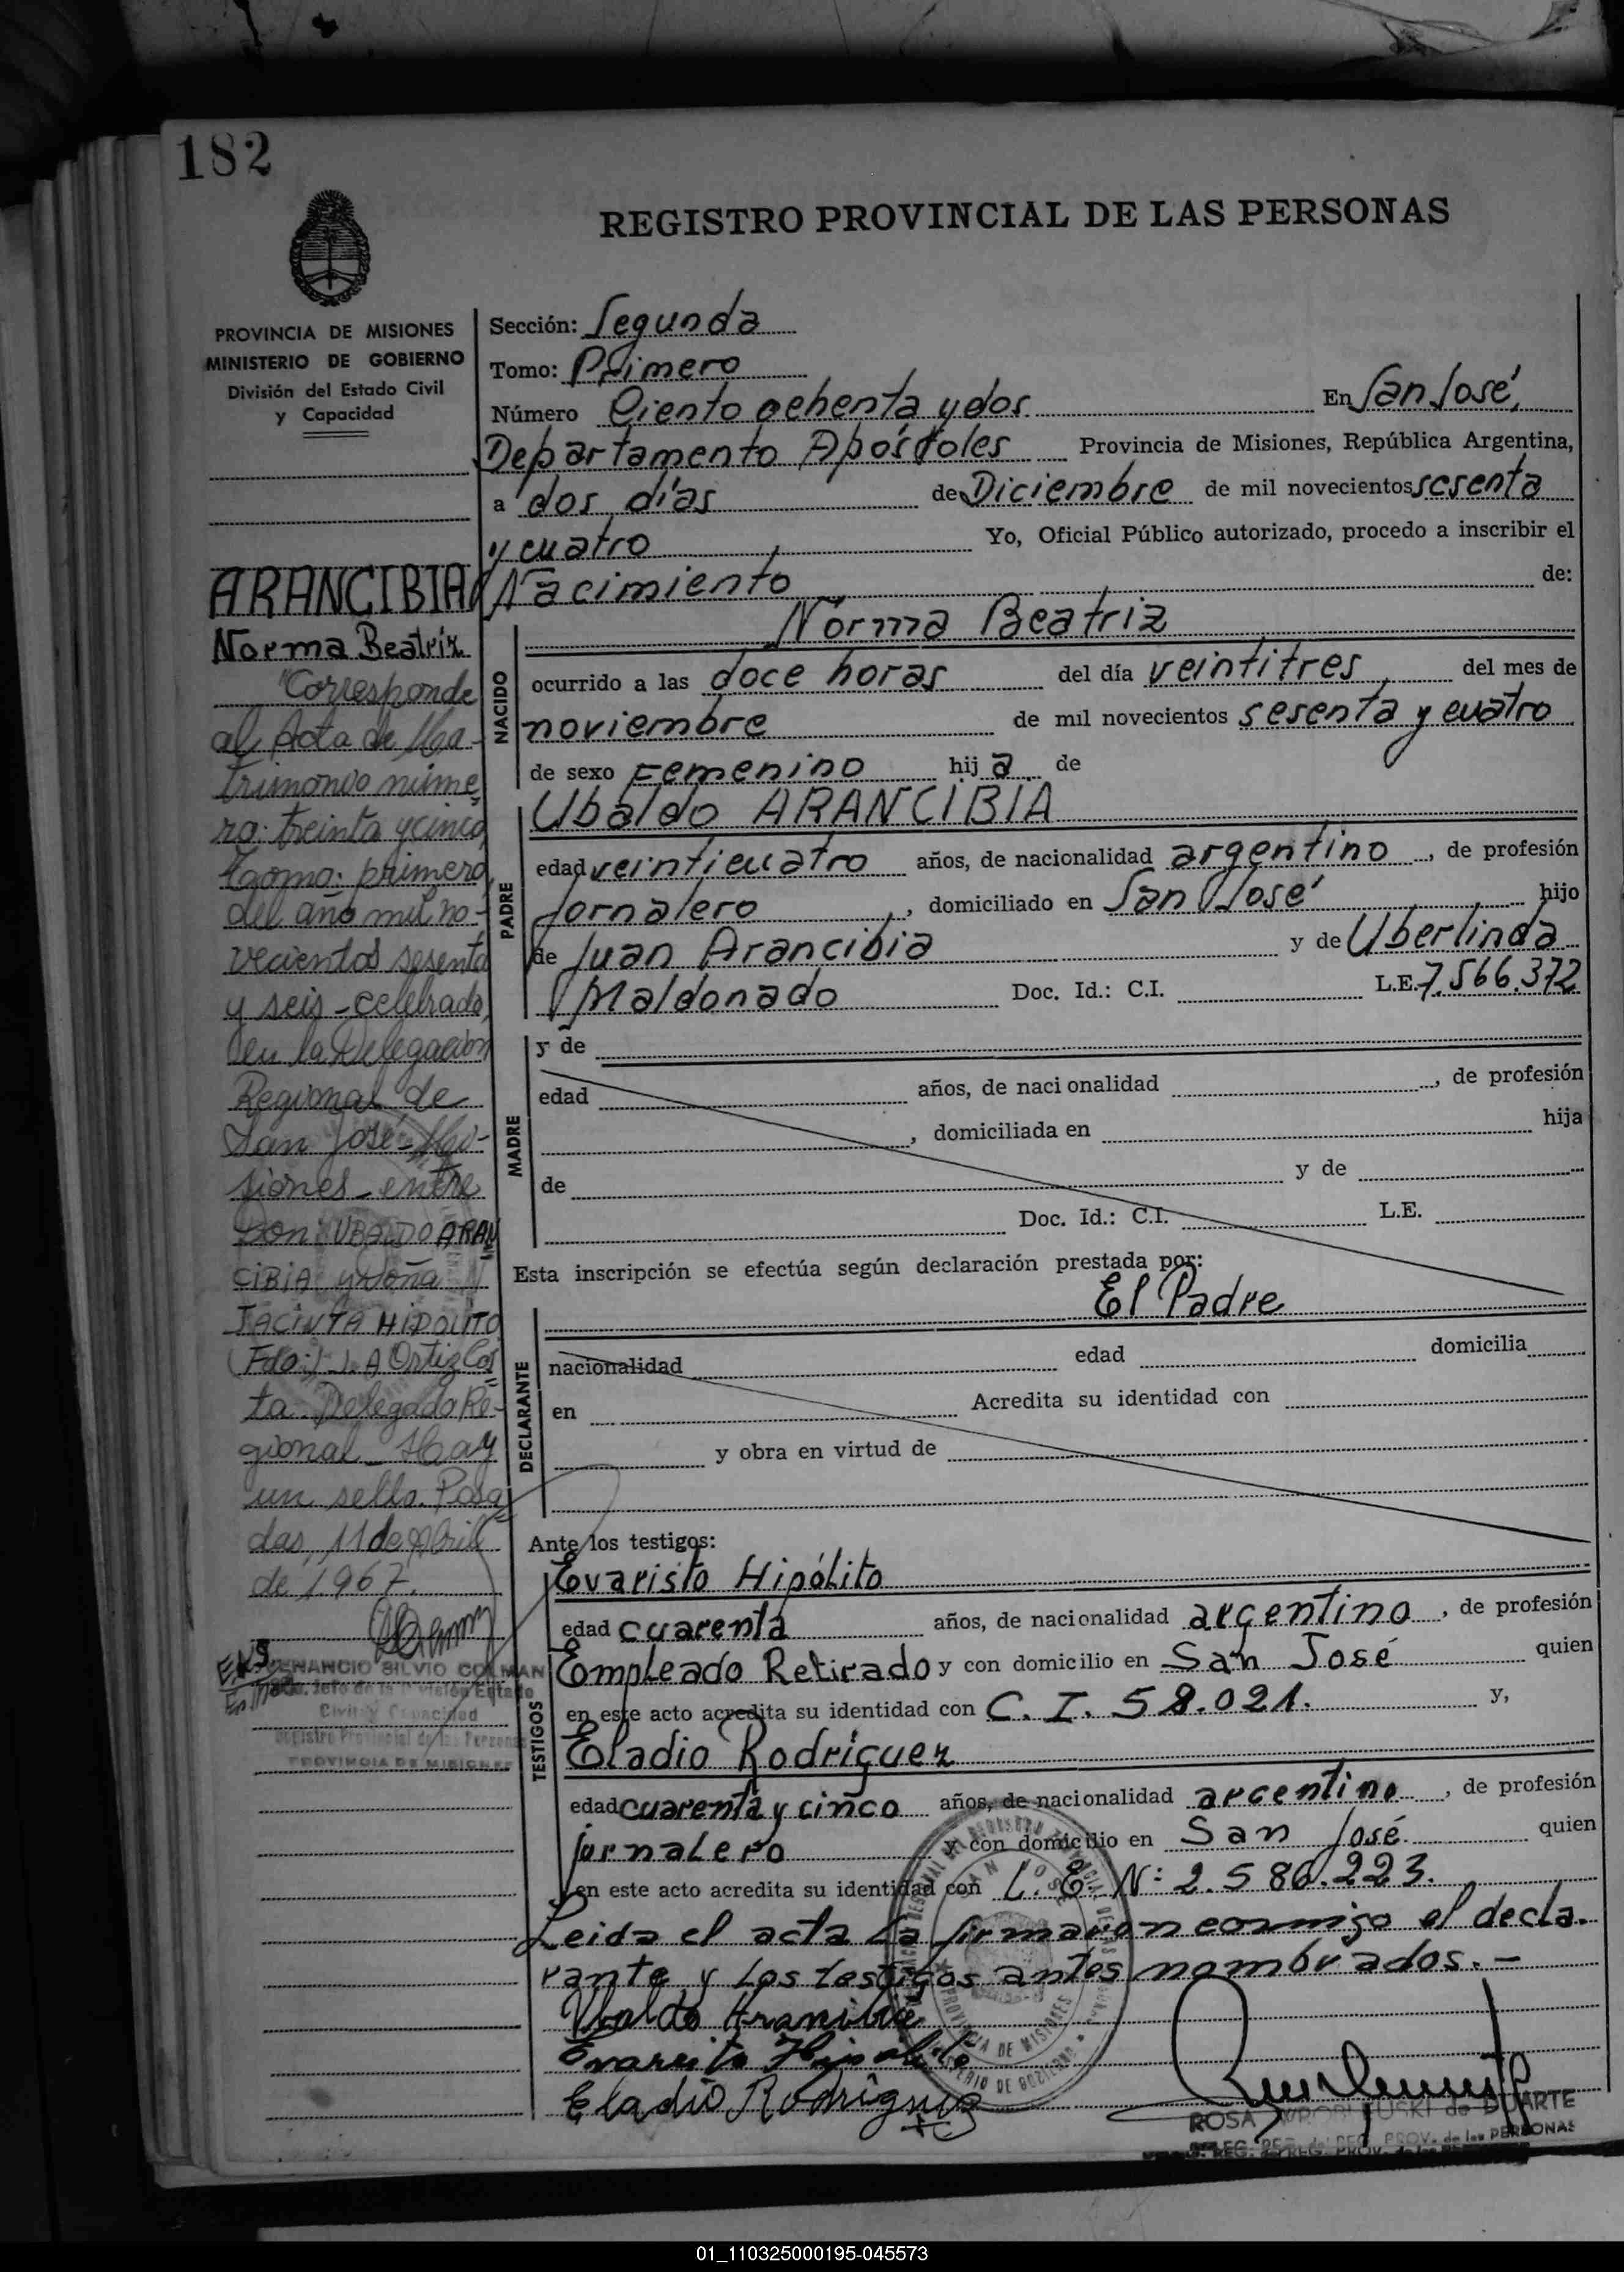 182
REGISTRO PROVINCIAL DE LAS PERSONAS
PROVINCIA DE MISIONES
MINISTERIO DE GOBIERNO
División del Estado Civil
y Capacidad
ARANCIBIA
Norma Beatriz
"Corresponde
al Acta de Ma-
trimonio núme
ro: treinta y cinco
Tomo: primero
del año mil no-
vecientos sesenta
y seis - celebrado
en la Delegación
Regional de
San José - Mi-
siones - entre
Don: UBALDO ARAN
CIBIA y Doña
JACINTA HIPOLITO
Fdo: J. A Ortiz Cos
ta. Delegado Re-
gional - Hay
un sello. Posa
das, 11 de Abril
de 1967.
VENANCIO SILVIO COLMAN
Jefe de la División Estado
Civil y Capacidad
Registro Provincial de las Personas
PROVINCIA DE MISIONES
Sección: Segunda
Tomo: Primero
Número Ciento ochenta y dos En San José,
Departamento Apóstoles Provincia de Misiones, República Argentina,
a dos días de Diciembre de mil novecientos sesenta
y cuatro Yo, Oficial Público autorizado, procedo a inscribir el
Nacimiento de:
NACIDO
Norma Beatriz
ocurrido a las doce horas del día veintitres del mes de
noviembre de mil novecientos sesenta y cuatro
de sexo Femenino hija de
PADRE
Ubaldo ARANCIBIA
edad veinticuatro años, de nacionalidad argentino, de profesión
Jornalero, domiciliado en San José hijo
de Juan Arancibia y de Uberlinda
Maldonado Doc. Id.: C.I. L.E. 7.566.372
MADRE
y de
edad años, de nacionalidad , de profesión
, domiciliada en hija
de y de
Doc. Id.: C.I. L.E.
Esta inscripción se efectúa según declaración prestada por:
El Padre
DECLARANTE
nacionalidad edad domicilia
en Acredita su identidad con
y obra en virtud de
Ante los testigos:
TESTIGOS
Evaristo Hipólito
edad cuarenta años, de nacionalidad argentino, de profesión
Empleado Retirado y con domicilio en San José quien
en este acto acredita su identidad con C. I. 58.021. y,
Eladio Rodríguez
edad cuarenta y cinco años, de nacionalidad argentino, de profesión
jornalero y con domicilio en San José. quien
en este acto acredita su identidad con L. E. N: 2.586.223.
Leida el acta la firmaron conmigo el decla-
rante y los testigos antes nombrados. -
Ubaldo Arancibia
Evaristo Hipolito
Eladio Rodriguez
SAN JOSE
PROVINCIA DE MISIONES
MINISTERIO DE GOBIERNO
ROSA de DUARTE
REG. PROV. de las PERSONAS
01_110325000195-045573